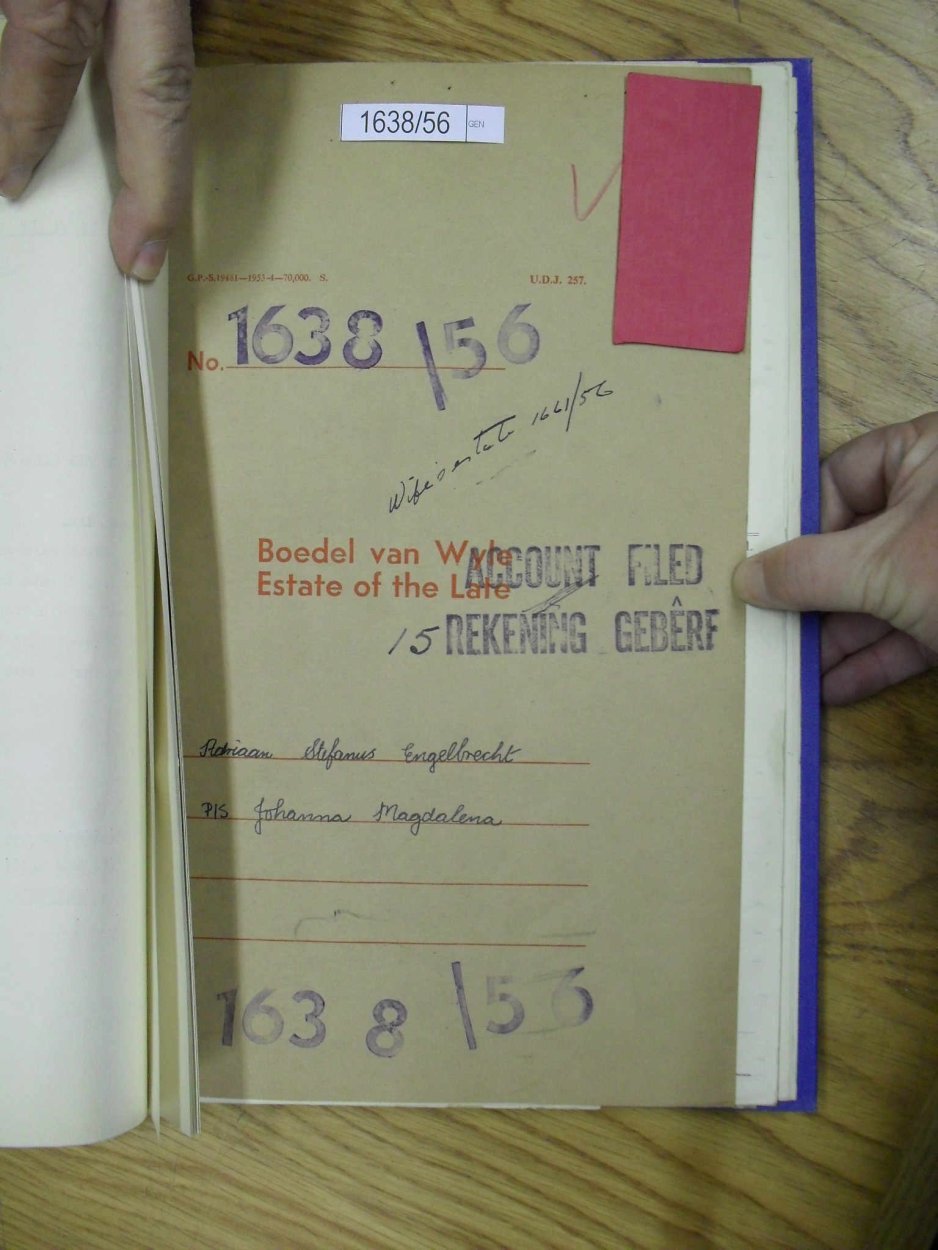 1638/56 GEN
G.P.-S.19461—1953-4—70,000. S. U.D.J. 257.
No. 1638/56
Wife's estate 1661/56
Boedel van Wyle
Estate of the Late
ACCOUNT FILED
15 REKENING GEBÊRF
Adriaan Stefanus Engelbrecht
P/S Johanna Magdalena
1638/56